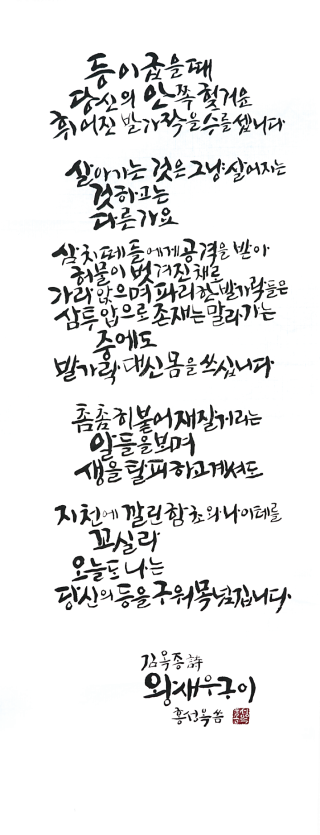 등이 굽을 때
당신의 안쪽 헐거운
휘어진 발가락을 수를 셉니다
살아가는 것은 그냥 살아지는
것하고는
다른가요
삼치떼들에게 공격을 받아
허물이 벗겨진 채로
가라앉으며 파리한 발가락들은
삼투압으로 존재는 말라가는
중에도
발가락 대신 몸을 쓰십니다
촘촘히 붙어 재잘거리는
알들을 보며
생을 탈피하고 계셔도
지천에 깔린 함초의 나이테를
꼬실라
오늘도 나는
당신의 등을 구워 목넘깁니다.
김옥종 詩
왕새우구이
홍성옥 씀